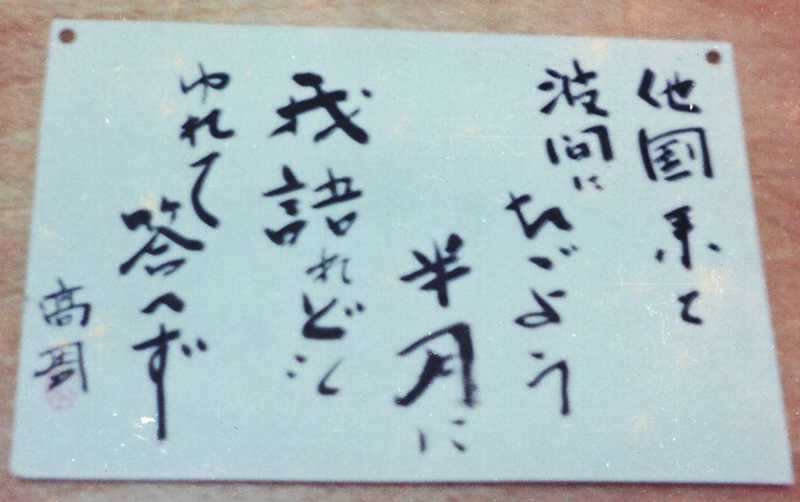 他国来て
波間に
たゞよう
半月に
我語れども
ゆれて
答へず
高周